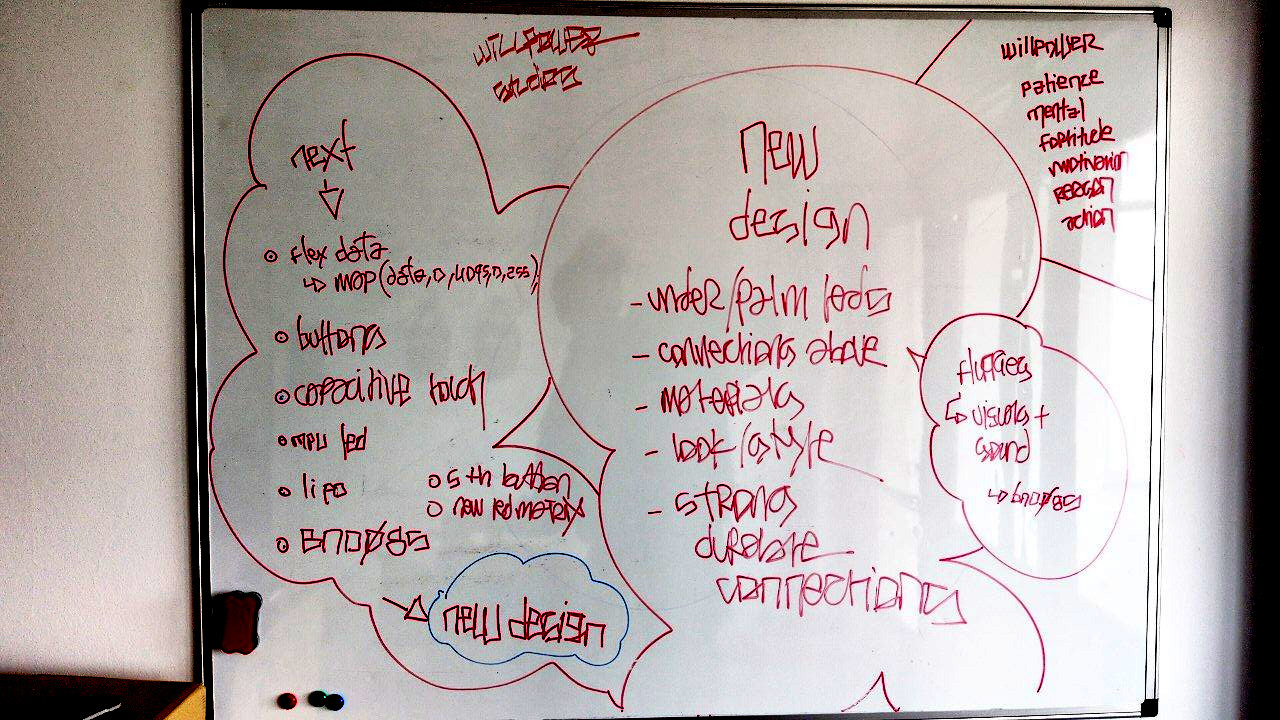 willpower
next
flex data
↳ map(data,0,4095,0,255);
buttons
capacitive touch
mpu led
lipo
5th button
new led matrix
new design
new
design
- under/palm leds
- connections above
- materials
- look/style
- strong
durable
connections
willpower
patience
mental
fortitude
motivation
reason
action
↳ visuals +
sound